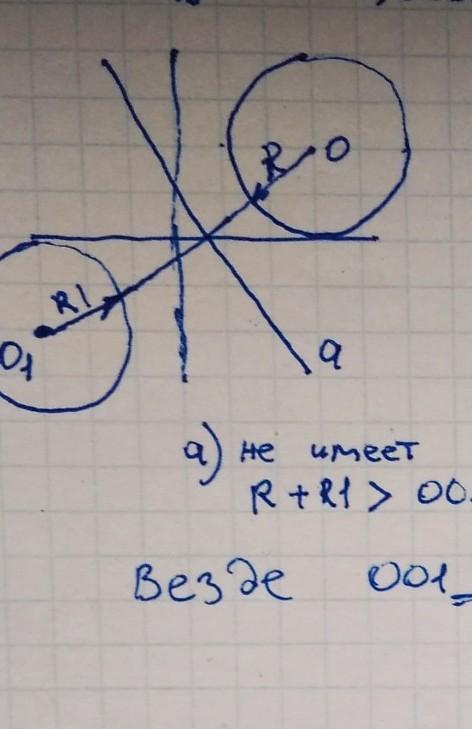 R O
R1
O1
a
а) не имеет
R + R1 > OO
Везде OO1